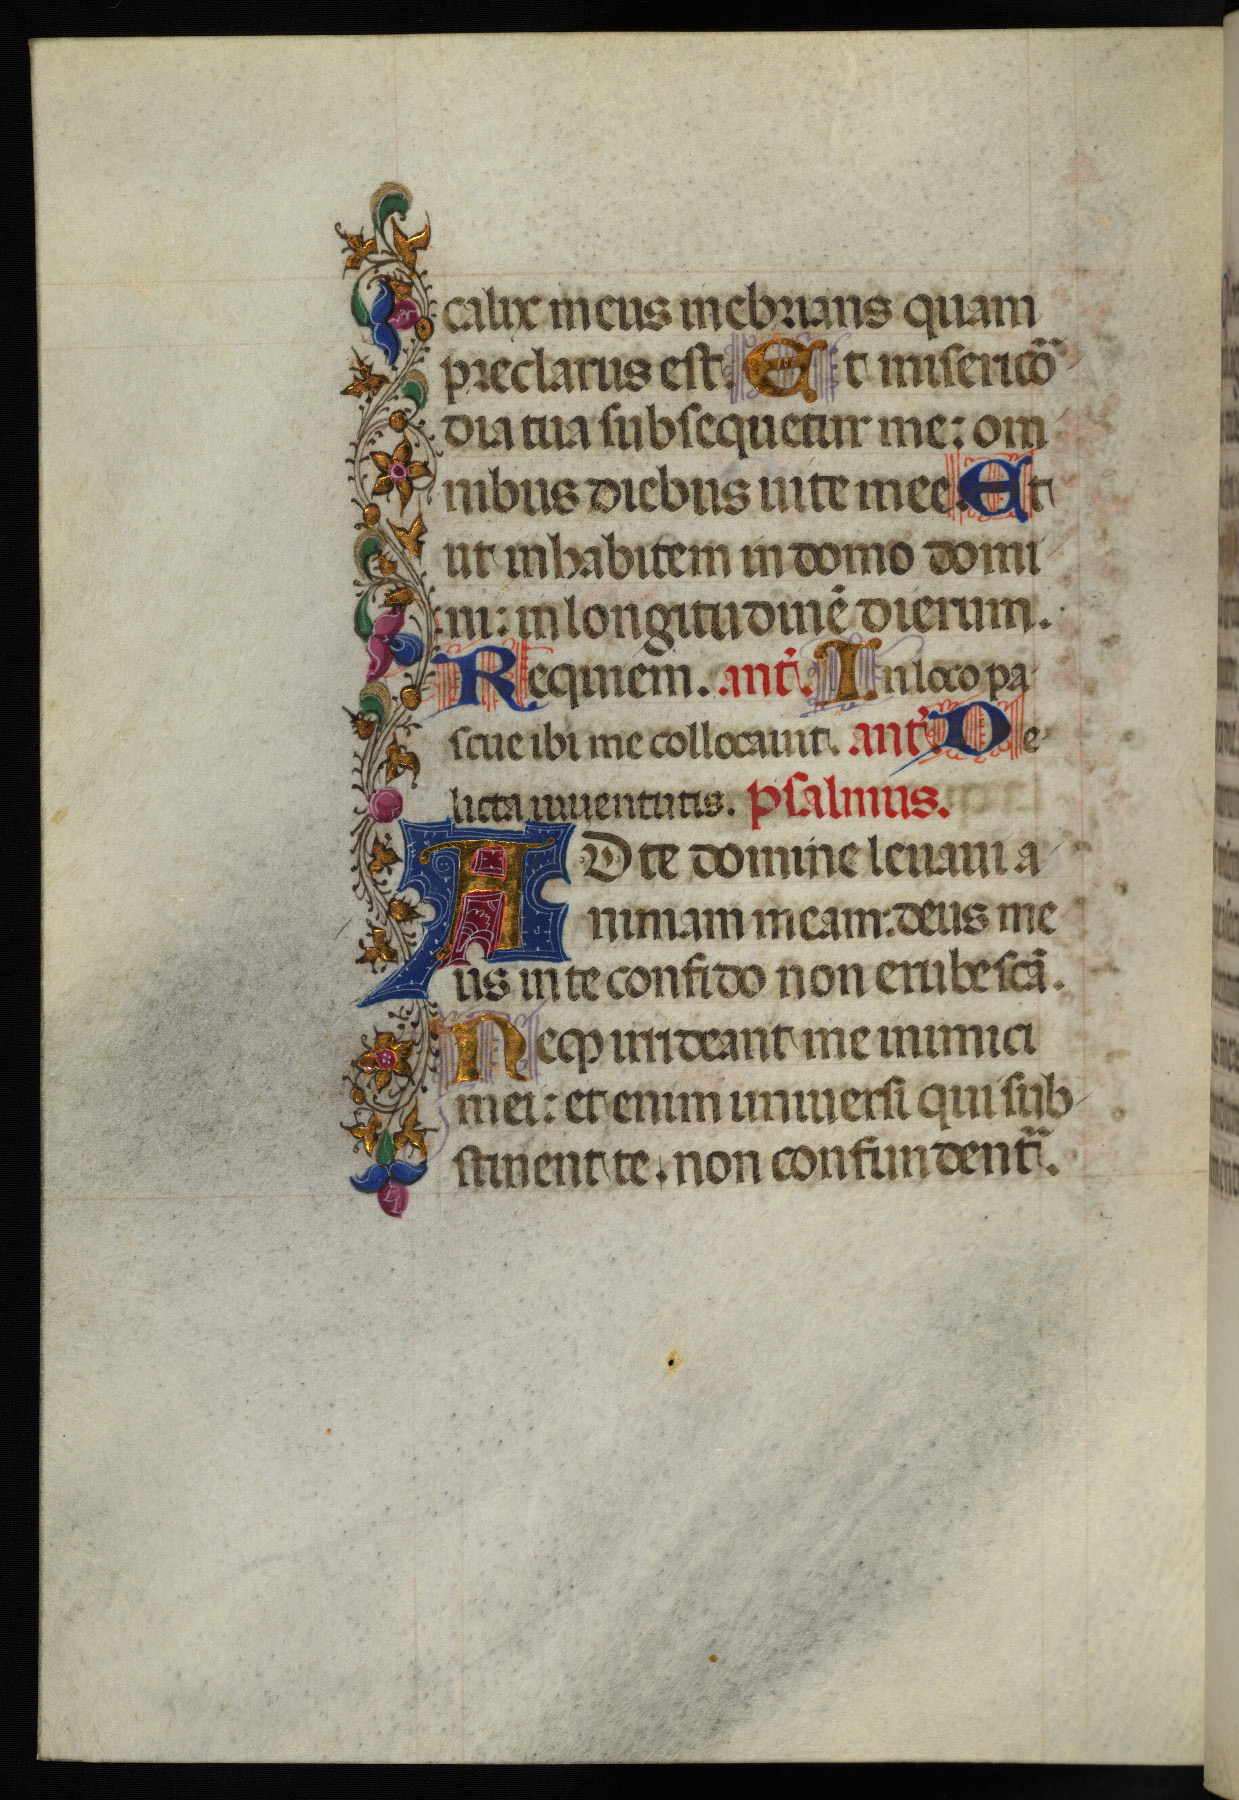 calix meus inebrians quam
preclarus est. Et misericõ
dia tua subsequetur me: om
nibus diebus uite mee. Et
ut inhabitem in domo domi
ni: in longitudinẽ dierum.
Requiem. ant̃. In loco pa
scue ibi me collocauit. ant̃ De
licta iuuentutis. psalmus.
AD te domine leuaui a
nimam meam: deus me
us in te confido non erubescã.
Neqꝫ irrideant me inimici
mei: et enim uniuersi qui sub
stinent te. non confundent̃.